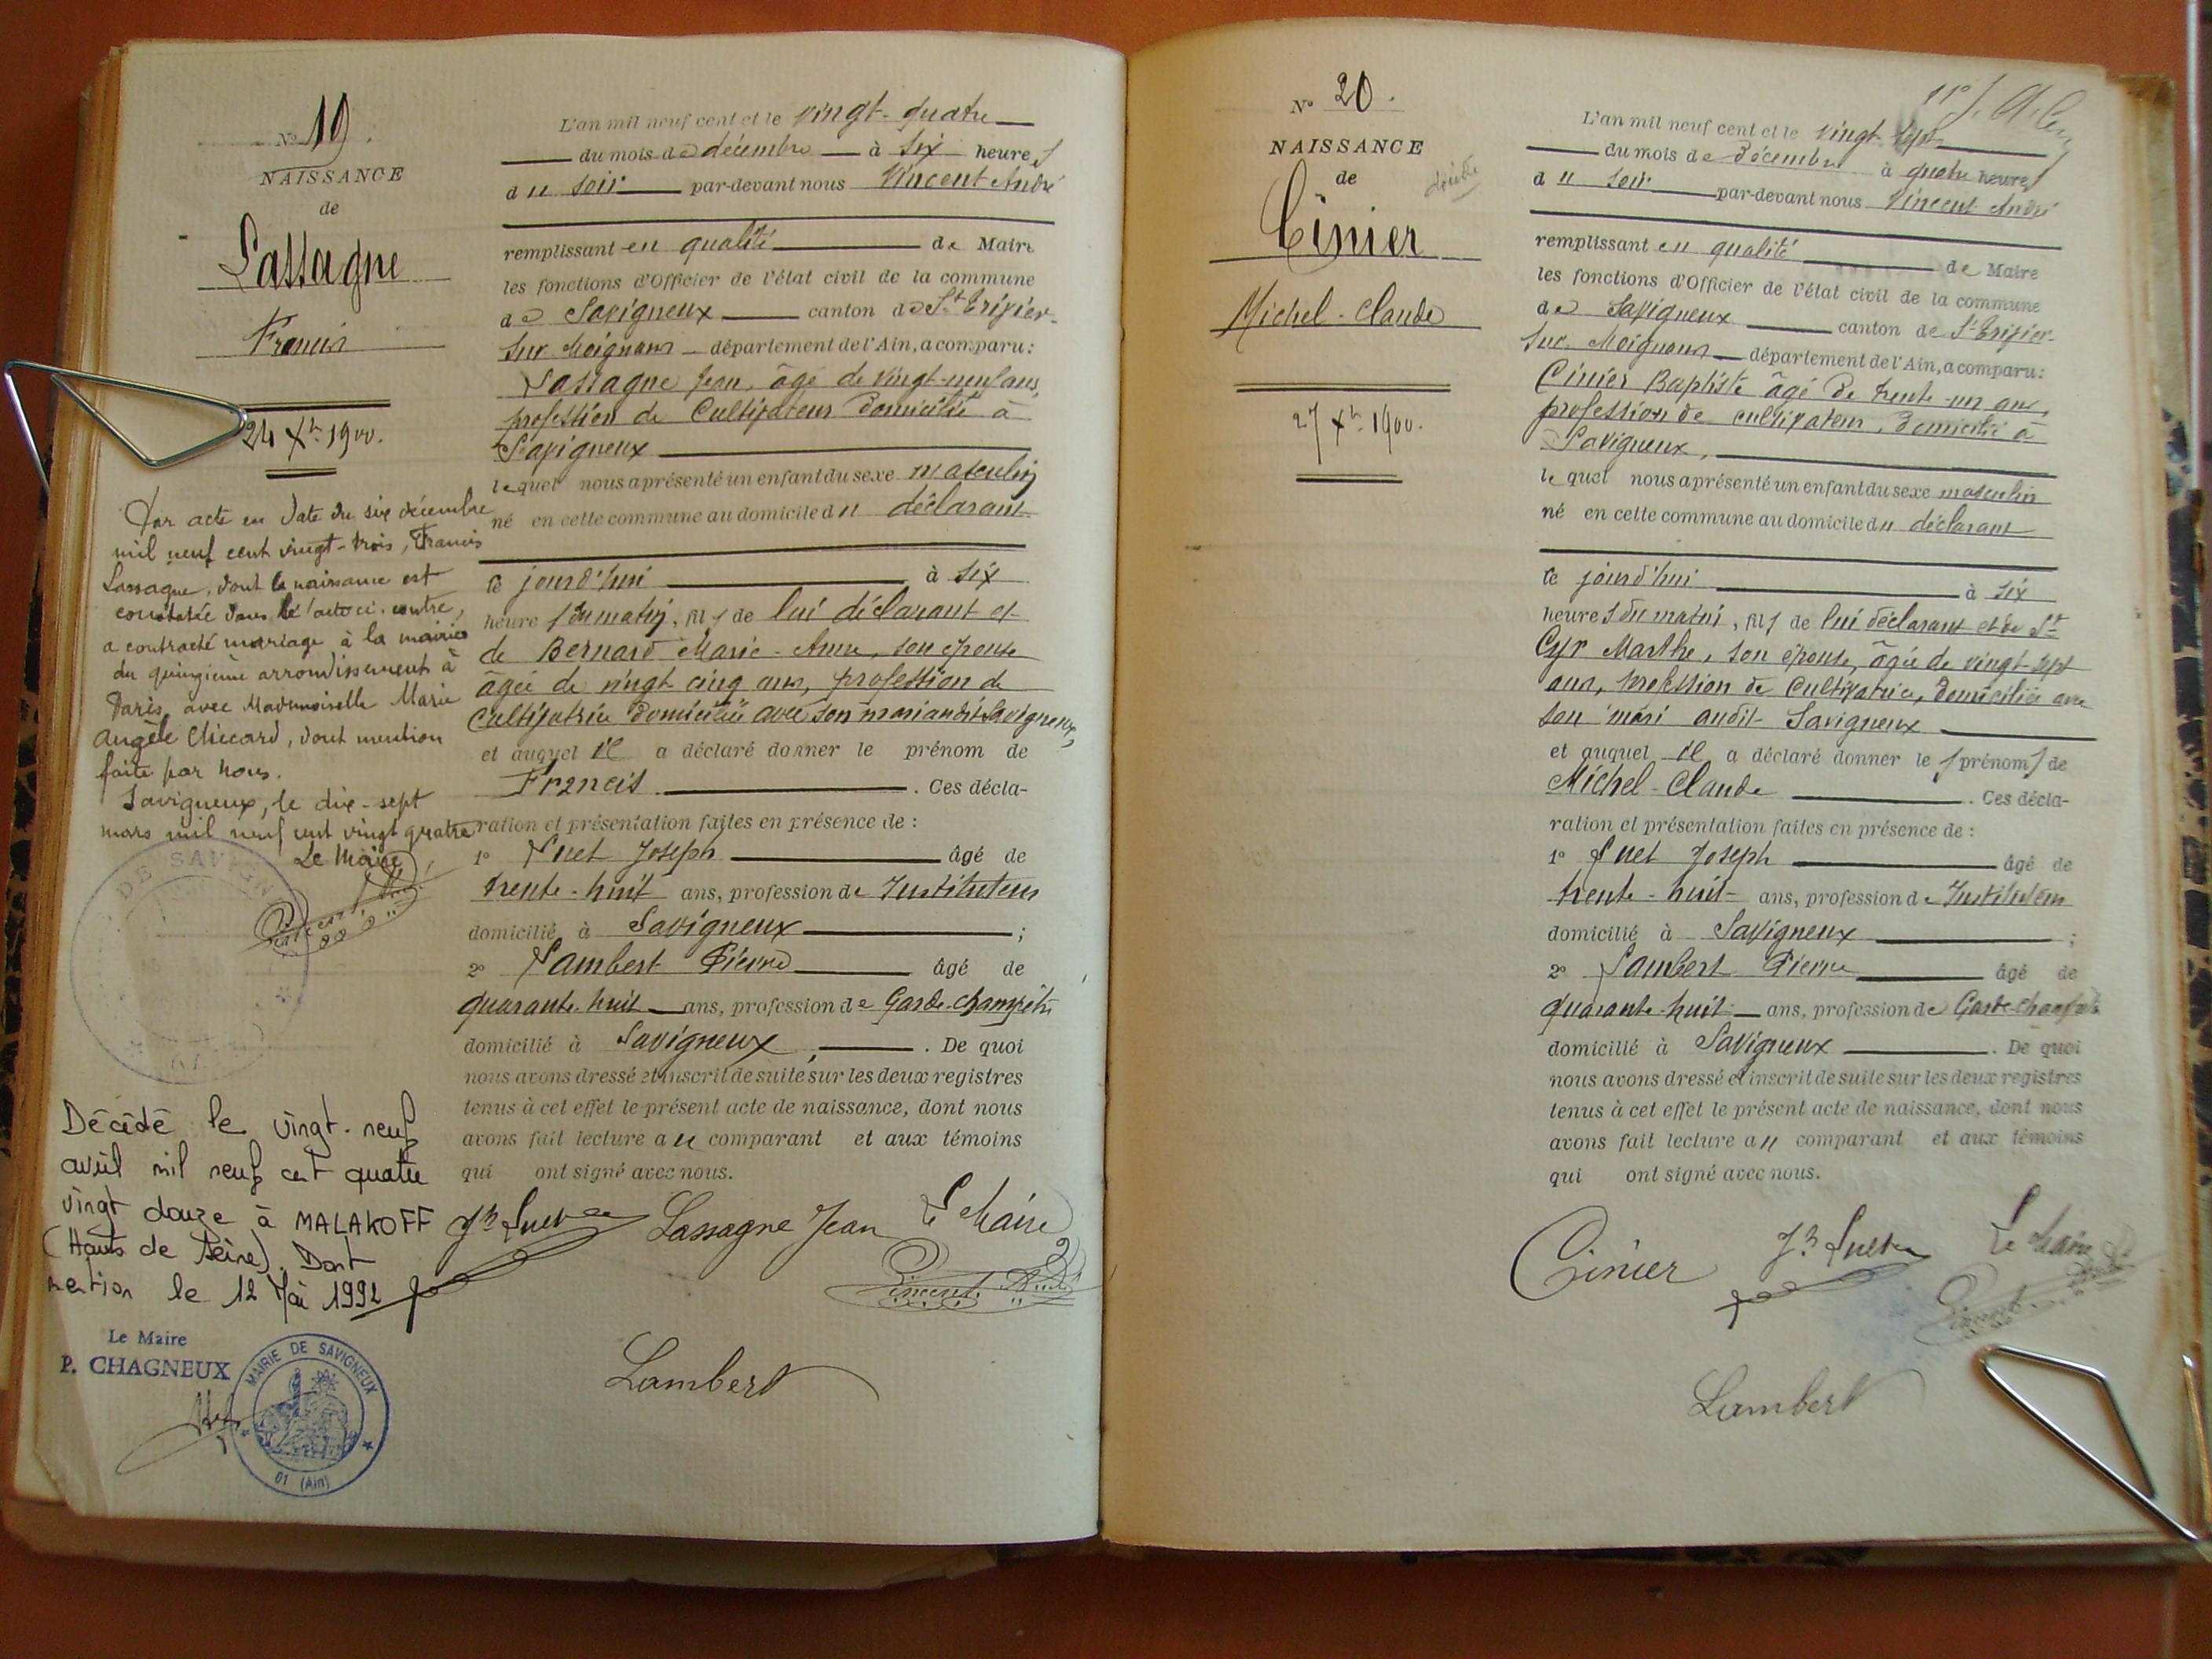 Nº 19.
NAISSANCE
de
Lassagne
Francis
24 Xbre 1900.
Par acte en date du six décembre
mil neuf cent vingt-trois, Francis
Lassagne, dont la naissance est
constatée dans l'acte ci-contre,
a contracté mariage à la mairie
du quinzième arrondissement à
Paris, avec Mademoiselle Marie
Angèle Cliccard, dont mention
faite par nous.
Savigneux, le dix-sept
mars mil neuf cent vingt quatre
Le Maire
Décédé le vingt-neuf
avril mil neuf cent quatre
vingt douze à MALAKOFF
(Hauts de Seine). Dont
mention le 12 Mai 1992
Le Maire
P. CHAGNEUX
MAIRIE DE SAVIGNEUX
01 (Ain)
L'an mil neuf cent et le vingt-quatre
du mois de décembre à six heures
du soir par-devant nous Vincent André
remplissant en qualité de Maire
les fonctions d'Officier de l'état civil de la commune
de Savigneux canton de St Trivier-
sur Moignans département de l'Ain, a comparu :
Lassagne Jean, âgé de vingt-neuf ans,
profession de Cultivateur domicilié à
Savigneux
lequel nous a présenté un enfant du sexe masculin
né en cette commune au domicile du déclarant
ce jourd'hui à six
heures du matin, fils de lui déclarant et
de Bernard Marie-Anne, son épouse
âgée de vingt-cinq ans, profession de
Cultivatrice domiciliée avec son mari audit Savigneux,
et auquel il a déclaré donner le prénom de
Francis . Ces décla-
ration et présentation faites en présence de :
1º Suet Joseph âgé de
trente-huit ans, profession de Instituteur
domicilié à Savigneux ;
2º Lambert Pierre âgé de
quarante-huit ans, profession de Garde-champêtre
domicilié à Savigneux, . De quoi
nous avons dressé et inscrit de suite sur les deux registres
tenus à cet effet le présent acte de naissance, dont nous
avons fait lecture au comparant et aux témoins
qui ont signé avec nous.
Jh Suet Lassagne Jean Le Maire
Vincent André
Lambert
Nº 20.
NAISSANCE
de
Cinier
Michel-Claude
27 Xbre 1900.
L'an mil neuf cent et le vingt-sept
du mois de Décembre à quatre heures
du soir par-devant nous Vincent André
remplissant en qualité de Maire
les fonctions d'Officier de l'état civil de la commune
de Savigneux canton de St Trivier-
sur Moignans département de l'Ain, a comparu :
Cinier Baptiste âgé de trente-un ans,
profession de cultivateur, domicilié à
Savigneux,
lequel nous a présenté un enfant du sexe masculin
né en cette commune au domicile du déclarant
ce jourd'hui à six
heures du matin, fils de lui déclarant et de St
Cyr Marthe, son épouse, âgée de vingt-sept
ans, profession de Cultivatrice, domiciliée avec
son mari audit Savigneux
et auquel il a déclaré donner les prénoms de
Michel-Claude . Ces décla-
ration et présentation faites en présence de :
1º Suet Joseph âgé de
trente-huit ans, profession de Instituteur
domicilié à Savigneux ;
2º Lambert Pierre âgé de
quarante-huit ans, profession de Garde-champêtre
domicilié à Savigneux . De quoi
nous avons dressé et inscrit de suite sur les deux registres
tenus à cet effet le présent acte de naissance, dont nous
avons fait lecture au comparant et aux témoins
qui ont signé avec nous.
Cinier Jh Suet Le Maire
Vincent
Lambert